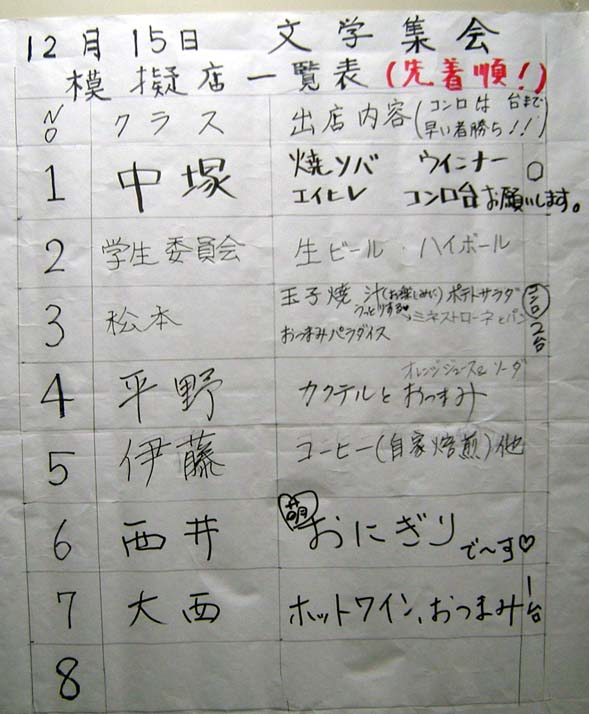 12月15日 文学集会
模擬店一覧表(先着順!)
NO クラス 出店内容(コンロは 台まで
早い者勝ち!!)
1 中塚 焼ソバ ウインナー
エイヒレ コンロ台お願いします。
2 学生委員会 生ビール・ハイボール
3 松本 玉子焼 汁(お楽しみに)ポテトサラダ
うっとりする♥→ミネストローネとパン
おつまみパラダイス
コンロ2台
4 平野 カクテルとおつまみ
オレンジジュースとソーダ
5 伊藤 コーヒー(自家焙煎)他
6 西井 萌おにぎりで〜す♡
7 大西 ホットワイン、おつまみ 1台
8